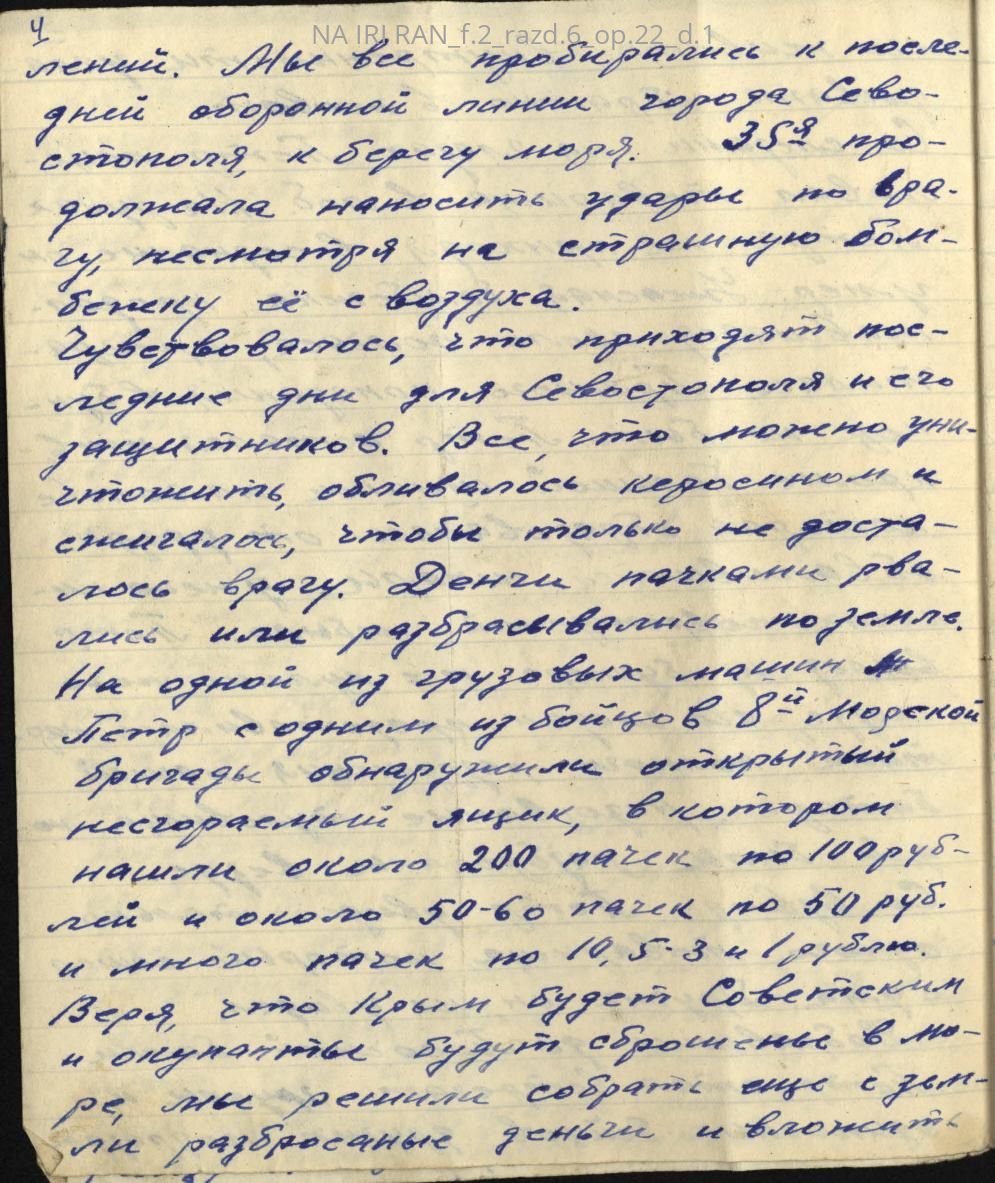 NA IRI RAN_f.2_razd.6_op.22_d.1
4
лений. Мы все пробирались к после-
дней оборонной линии города Сево-
стополя, к берегу моря. 35я про-
должала наносить удары по вра-
гу, несмотря на страшную бом-
бежку её с воздуха.
Чувствовалось, что приходят пос-
ледние дни для Севостополя и его
защитников. Все, что можно уни-
чтожить, обливалось керосином и
сжигалось, чтобы только не доста-
лось врагу. Деньги пачками рва-
лись или разбрасывались по земле.
На одной из грузовых машин
Петр с одним из бойцов 8й Морской
бригады обнаружили открытый
несгораемый ящик, в котором
нашли около 200 пачек по 100 руб-
лей и около 50-60 пачек по 50 руб.
и много пачек по 10, 5-3 и 1 рублю.
Веря, что Крым будет Советским
и окупанты будут сброшены в мо-
ре, мы решили собрать еще с зем-
ли разбросаные деньги и вложить